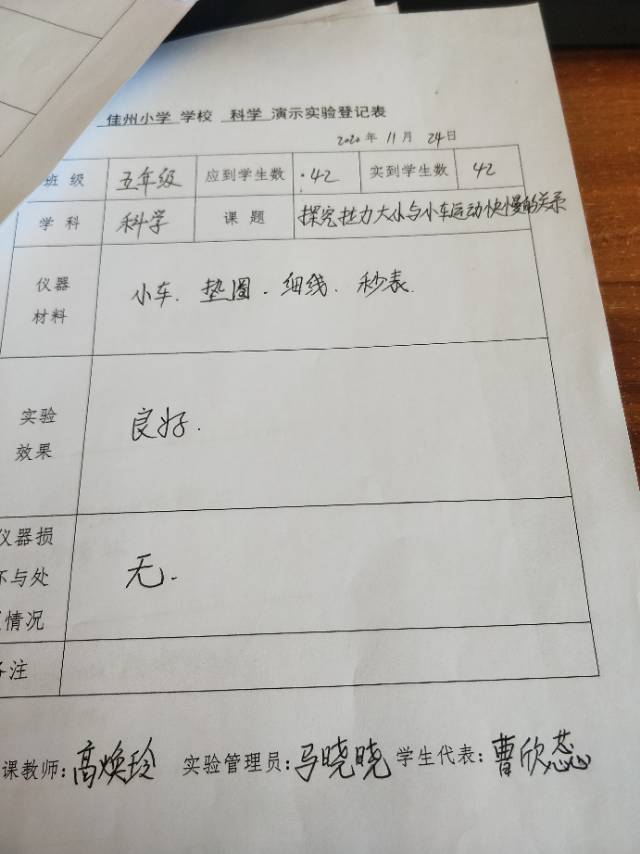 佳州小学 学校 科学 演示实验登记表
2020年 11月 24日
班级 五年级 应到学生数 .42 实到学生数 42
学科 科学 课题 探究拉力大小与小车运动快慢的关系
仪器
材料
小车. 垫圈. 细线. 秒表.
实验
效果
良好.
仪器损
坏与处
情况
无.
备注
课教师:高焕玲 实验管理员:马晓晓 学生代表:曹欣蕊